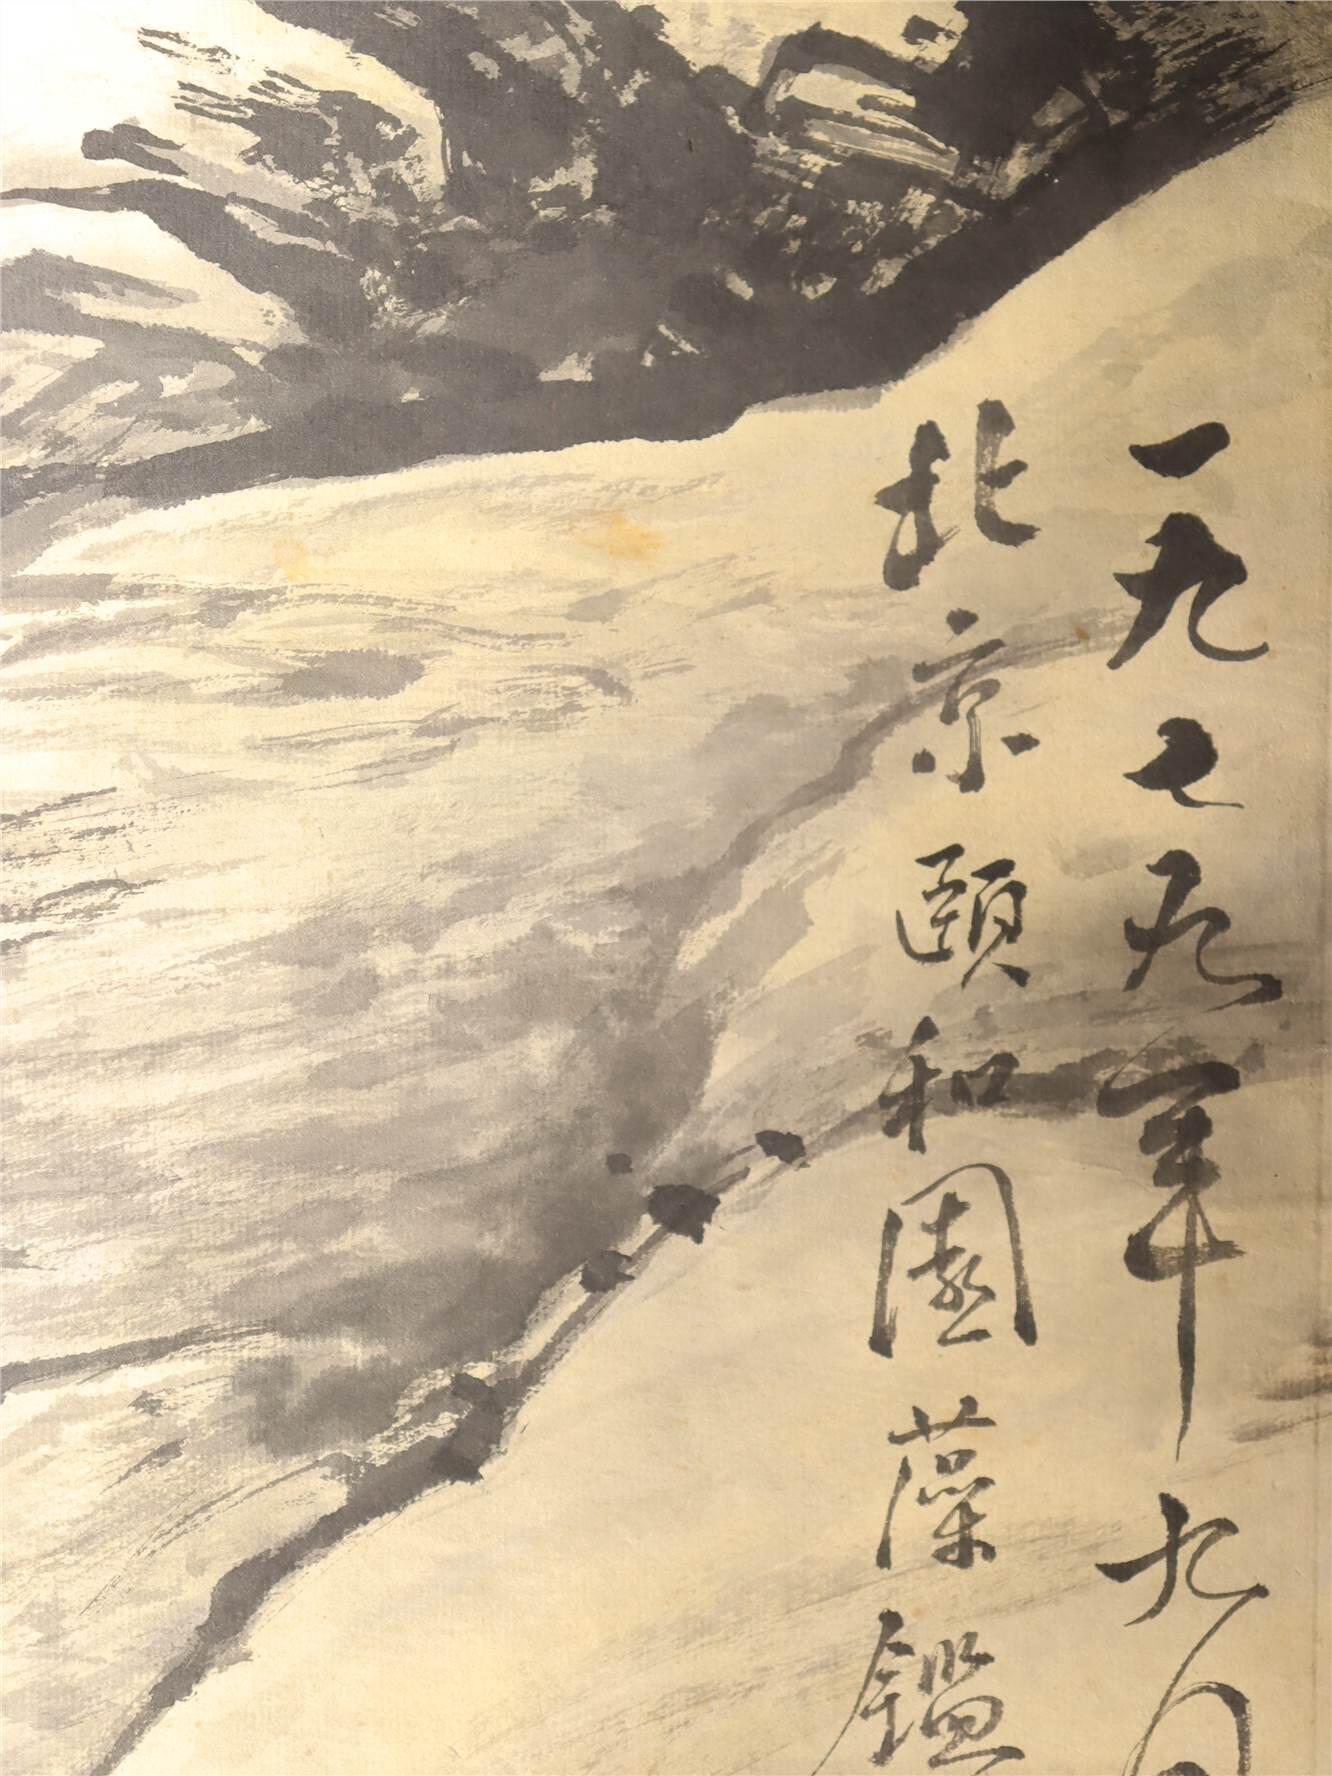 一九七九年九月
北京頤和園藻鑑